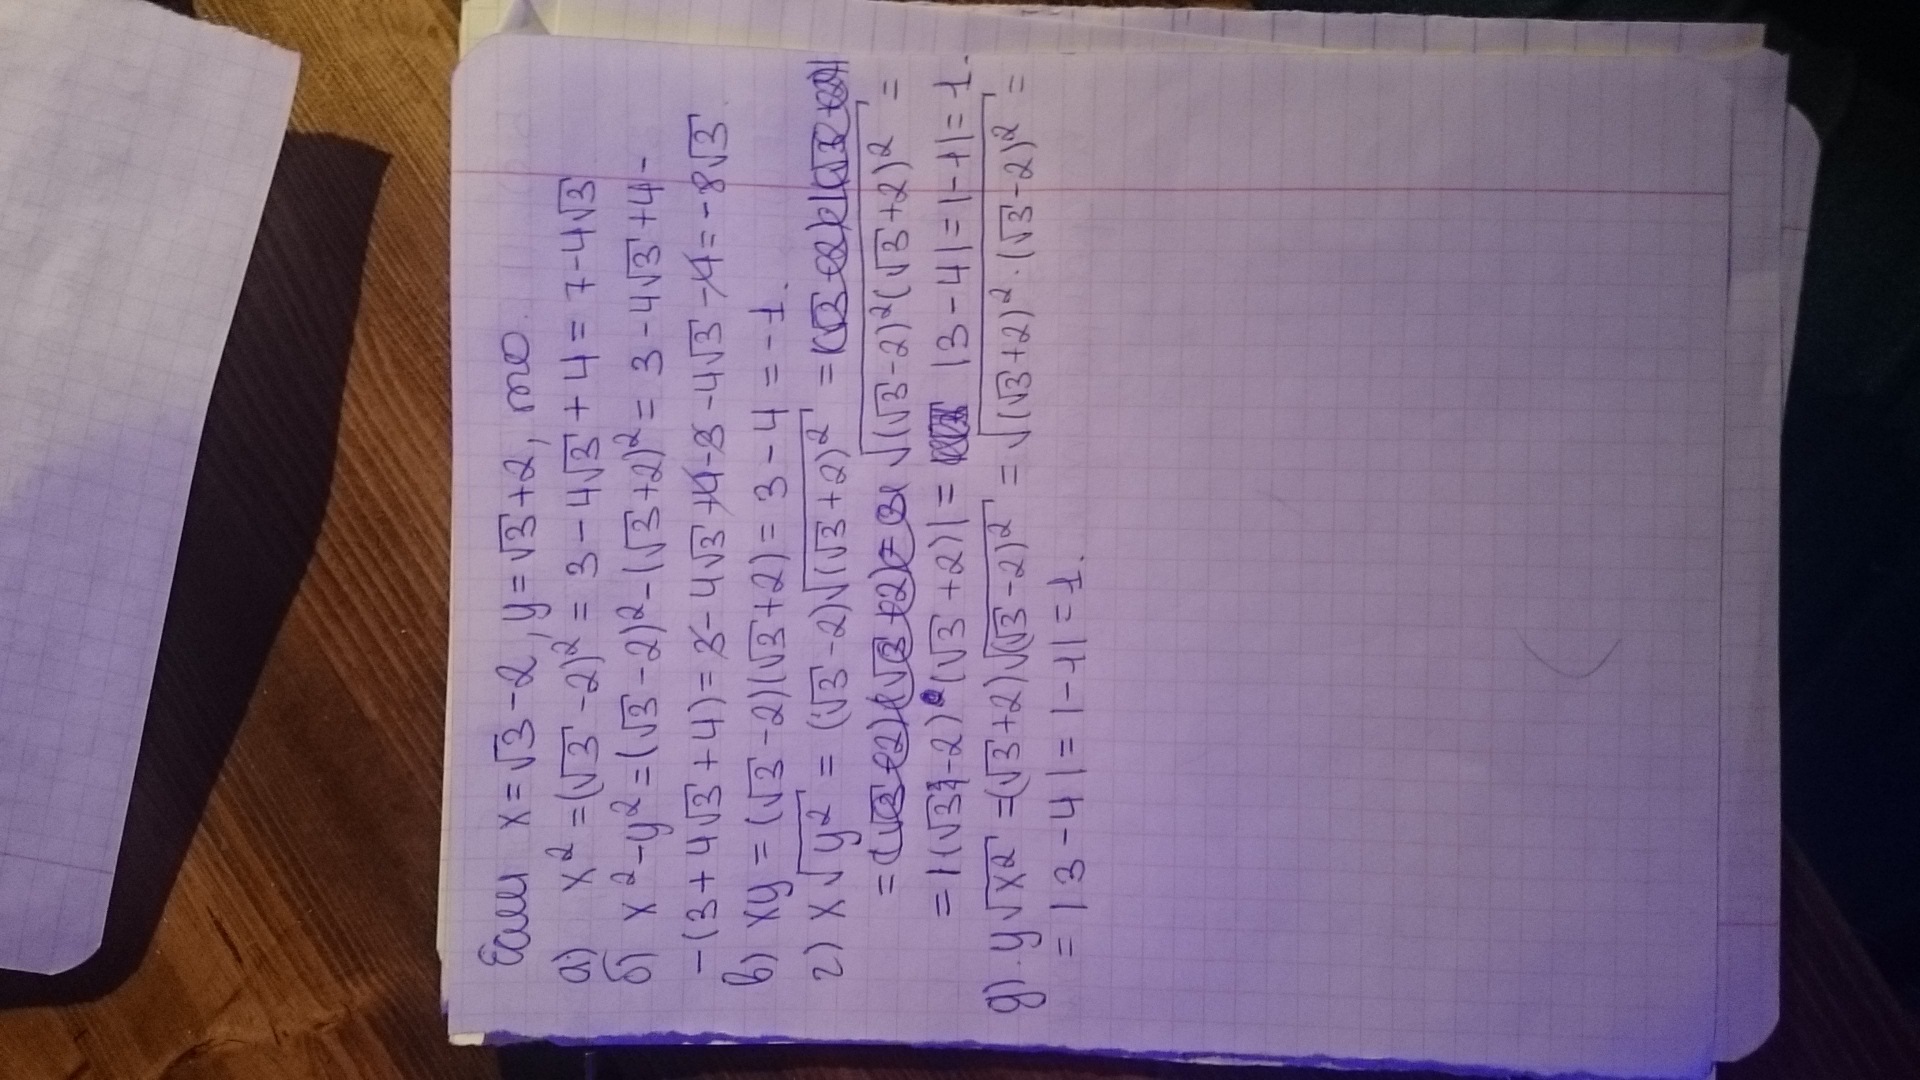 Если x = √3 - 2, y = √3 + 2, то
а) x² = (√3 - 2)² = 3 - 4√3 + 4 = 7 - 4√3
б) x² - y² = (√3 - 2)² - (√3 + 2)² = 3 - 4√3 + 4 -
- (3 + 4√3 + 4) = 3 - 4√3 + 4 - 3 - 4√3 - 4 = - 8√3
в) xy = (√3 - 2)(√3 + 2) = 3 - 4 = - 1.
г) x√y² = (√3 - 2)√(√3 + 2)² =
= √(√3 - 2)²(√3 + 2)² =
= |(√3 - 2)(√3 + 2)| = |3 - 4| = |-1| = 1.
д). y√x² = (√3 + 2)√(√3 - 2)² = √(√3 + 2)² · (√3 - 2)² =
= |3 - 4| = |-1| = 1.